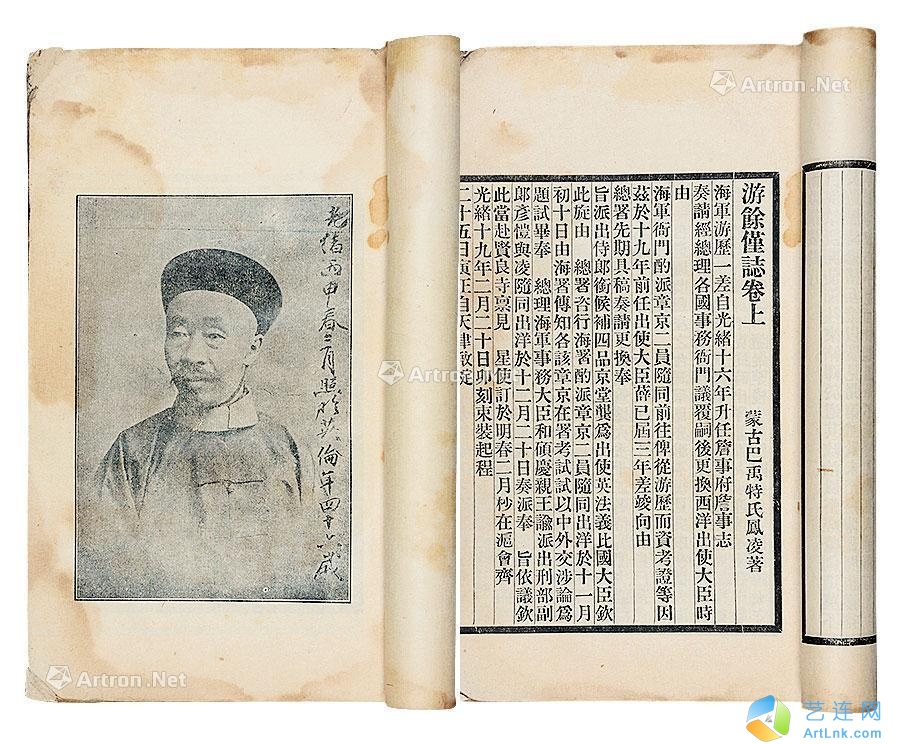 光緒丙申春三月照於英倫年四十八歲
游餘僅誌卷上
蒙古巴禹特氏鳳凌著
海軍游歷一差自光緒十六年升任詹事府詹事志
奏請經總理各國事務衙門議覆嗣後更換西洋出使大臣時
由
海軍衙門酌派章京二員隨同前往俾從游歷而資考證等因
茲於十九年前任出使大臣薛已屆三年差竣向由
總署先期具稿奏請更換奉
旨派出侍郎銜候補四品京堂龔爲出使英法義比國大臣欽
此旋由 總署咨行海署酌派章京二員隨同出洋於十一月
初十日由海署傳知各該章京在署考試試以中外交涉論爲
題試畢奉 總理海軍事務大臣和碩慶親王諭派出刑部副
郎彥愷與凌隨同出洋於十二月二十日奏派奉 旨依議欽
此當赴賢良寺稟見 星使訂於明春二月杪在滬會齊
光緒十九年二月二十日卯刻束裝起程
二十五日寅正自天津啟碇
Artron.Net
Artron.Net
Artron.Net
Artron.Net
艺连网
ArtLnk.com